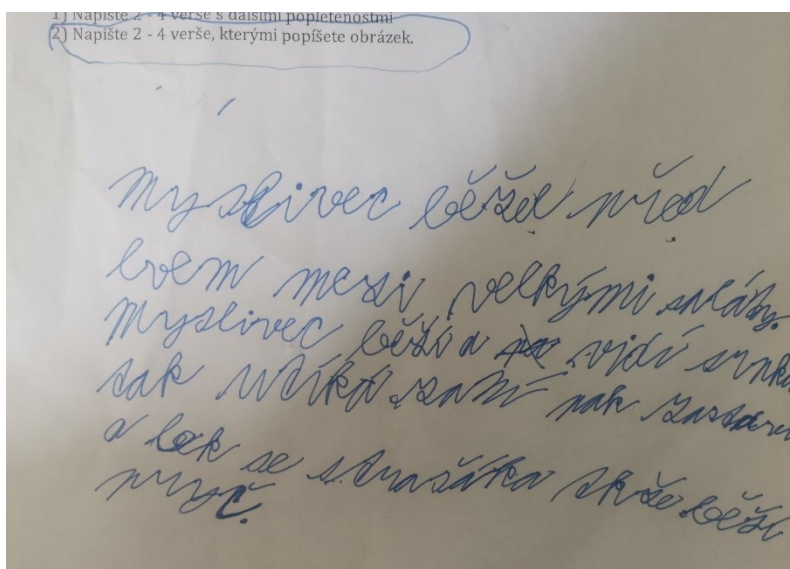 1) Napište 2 - 4 verše s dalšími popletenostmi
2) Napište 2 - 4 verše, kterými popíšete obrázek.
Myslivec běžel před
lvem mezi velkými
Myslivec běží a vidí srnku
tak utíká za ní pak zastaví
a lek se strašáka takže běží
pryč.